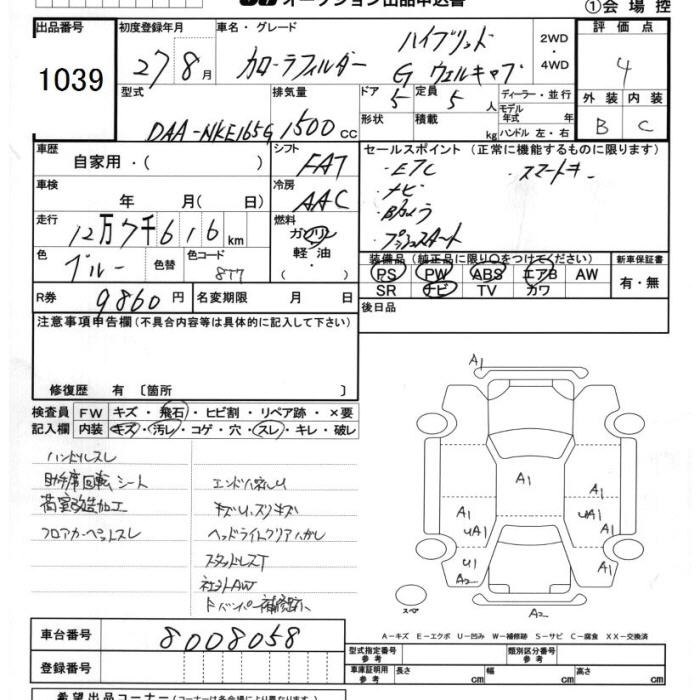 オークション出品申込書
①会場控
出品番号
1039
初度登録年月
27 8月
車名・グレード
カローラフィルダー
ハイブリッド
G ウェルキャブ
2WD
・
4WD
評価点
4
外装 内装
B C
型式
DAA-NKE165G
排気量
1500cc
ドア 5
定員 5人
形状
積載 kg
ディーラー・並行
モデル年式 年
ハンドル 左・右
車歴
自家用・( )
シフト
FAT
車検
年 月( 日)
冷房
AAC
走行
12万7千616km
燃料
ガソリン
軽油
・( )
色
ブルー
色替
色コード
8T7
R券
9860円
名変期限 月 日
セールスポイント (正常に機能するものに限ります)
・ETC ・スマートキー
・ナビ
・Bカメラ
・プッシュスタート
装備品 (純正品に限り○をつけてください)
PS PW ABS エアB AW
SR ナビ TV カワ
新車保証書
有・無
後日品
注意事項申告欄(不具合内容等は具体的に記入して下さい)
修復歴 有 〔箇所 〕
検査員記入欄
FW キズ・飛石・ヒビ割・リペア跡・×要
内装 キズ・汚レ・コゲ・穴・スレ・キレ・破レ
ハンドルスレ
助手席回転シート
荷室改造加工
フロアカーペットスレ
エンドパネルU
キズU、スリキズ
ヘッドライトクリアハガシ
スタッドレスT
社外AW
Fバンパー補修跡
A1
A1
A1
A1
UA1
A1
UA1
U1
A2
A1
A2
スペア
A-キズ E-エクボ U-凹み W-補修跡 S-サビ C-腐食 XX-交換済
車台番号
8008058
登録番号
型式指定番号
参考
類別区分番号
参考
車庫証明用
参考
長さ cm
幅 cm
高さ cm
希望出品コーナー(コーナーは各会場により異なります)